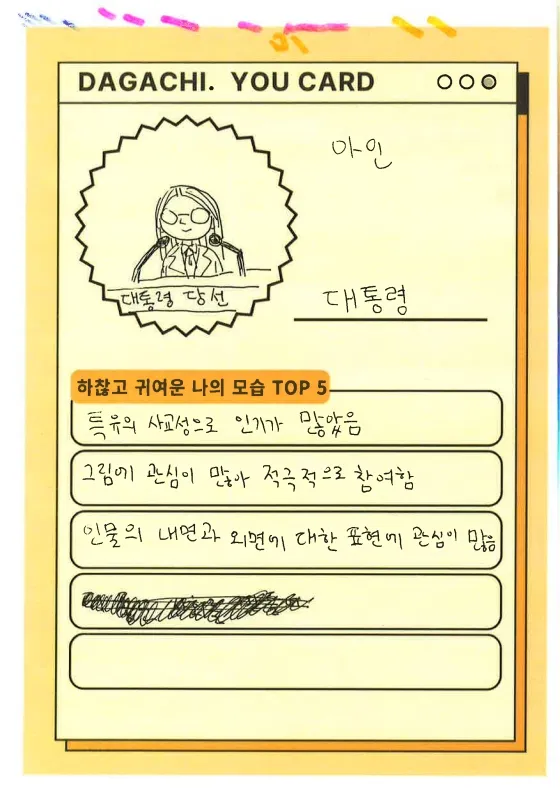 DAGACHI. YOU CARD
아인
대통령 당선
대통령
하찮고 귀여운 나의 모습 TOP 5
특유의 사교성으로 인기가 많았음
그림에 관심이 많아 적극적으로 참여함
인물의 내면과 외면에 대한 표현에 관심이 많음